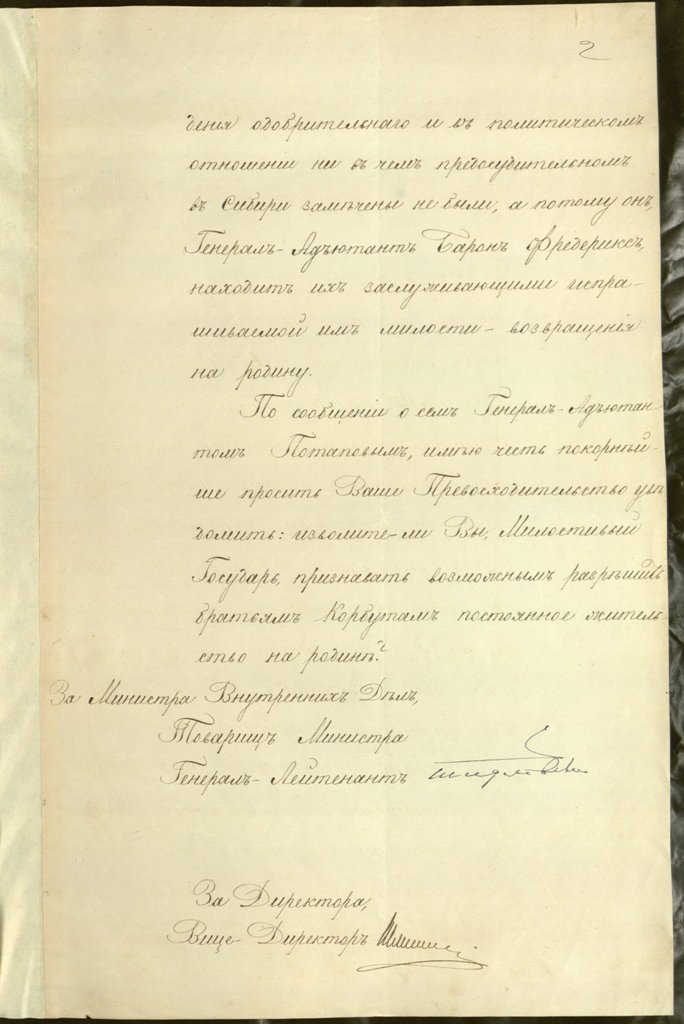 2
денія одобрительнаго и въ политическомъ
отношеніи ни въ чемъ предосудительномъ
въ Сибири замѣчены не были, а потому онъ,
Генералъ-Адъютантъ Баронъ Фредериксъ,
находитъ ихъ заслуживающими испра-
шиваемой имъ милости – возвращенія
на родину.
По сообщеніи о семъ Генералъ-Адъютан-
томъ Потаповымъ, имѣю честь покорнѣй-
ше просить Ваше Превосходительство увѣ
домить: изволите-ли Вы, Милостивый
Государь, признавать возможнымъ разрѣшить
братьямъ Корбутамъ постоянное житель-
ство на родинѣ?
За Министра Внутреннихъ Дѣлъ,
Товарищъ Министра
Генералъ-Лейтенантъ
За Директора,
Вице-Директоръ